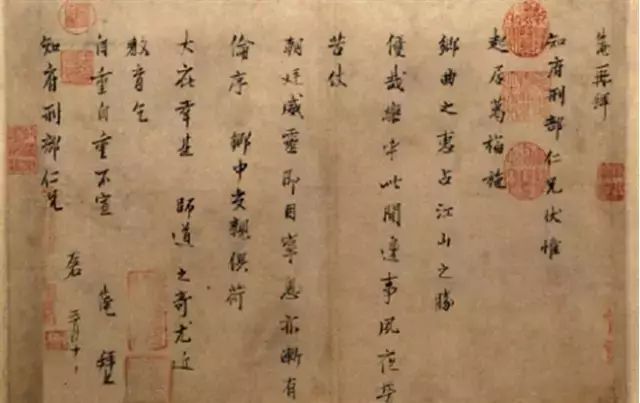 淹再拜
知府刑部仁兄伏惟
起居萬福施
鄉曲之惠占江山之勝
優哉樂乎此間邊事夙夜勞
苦仗
朝廷威靈即目寧息亦漸有
倫序鄉中交親俱荷
大庇幸甚師道之奇尤近
教育乞
自重自重不宣 淹拜上
知府刑部仁兄 左右 三月十日